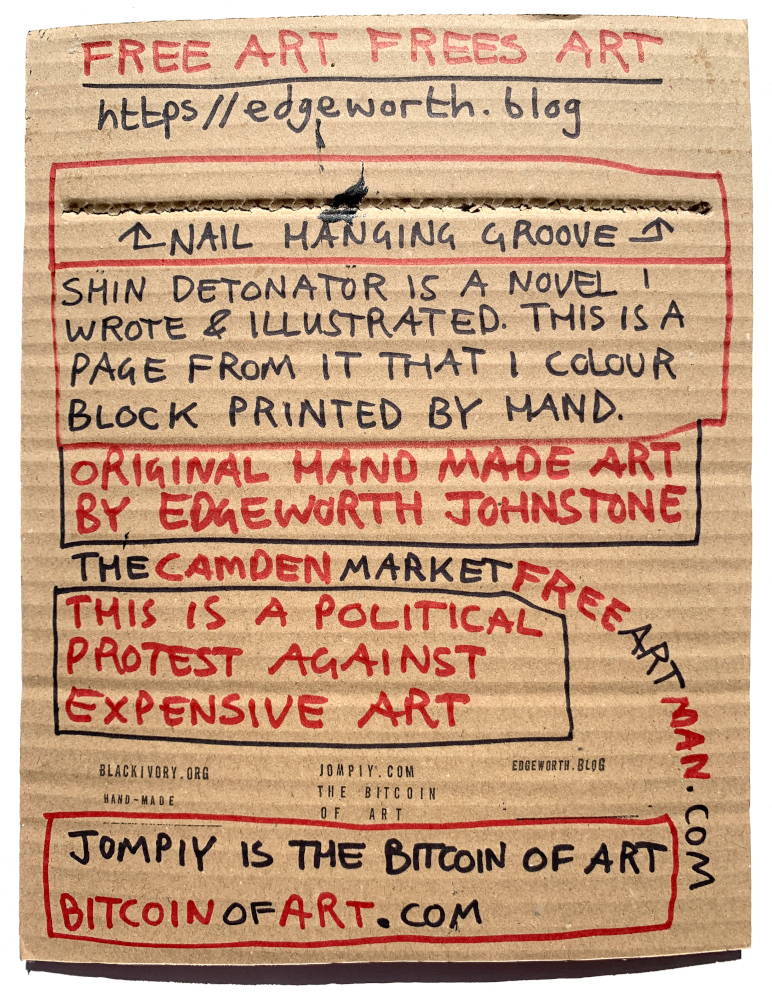 FREE ART FREES ART
https//edgeworth.blog
NAIL HANGING GROOVE
SHIN DETONATOR IS A NOVEL I
WROTE & ILLUSTRATED. THIS IS A
PAGE FROM IT THAT I COLOUR
BLOCK PRINTED BY HAND.
ORIGINAL HAND MADE ART
BY EDGEWORTH JOHNSTONE
THECAMDENMARKETFREEARTMAN.COM
THIS IS A POLITICAL
PROTEST AGAINST
EXPENSIVE ART
BLACKIVORY.ORG
HAND-MADE
JOMPIY.COM
THE BITCOIN
OF ART
EDGEWORTH.BLOG
JOMPIY IS THE BITCOIN OF ART
BITCOINOFART.COM